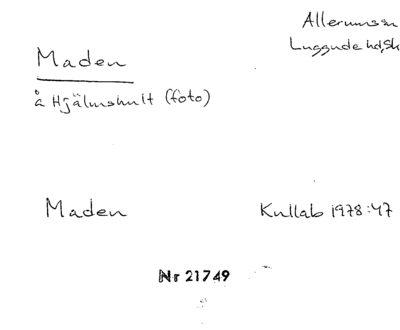 Allerums sn
Luggude hd, Sk
Maden
å Hjälmshult (foto)
Maden
Kullab 1978:47
Nr 21749